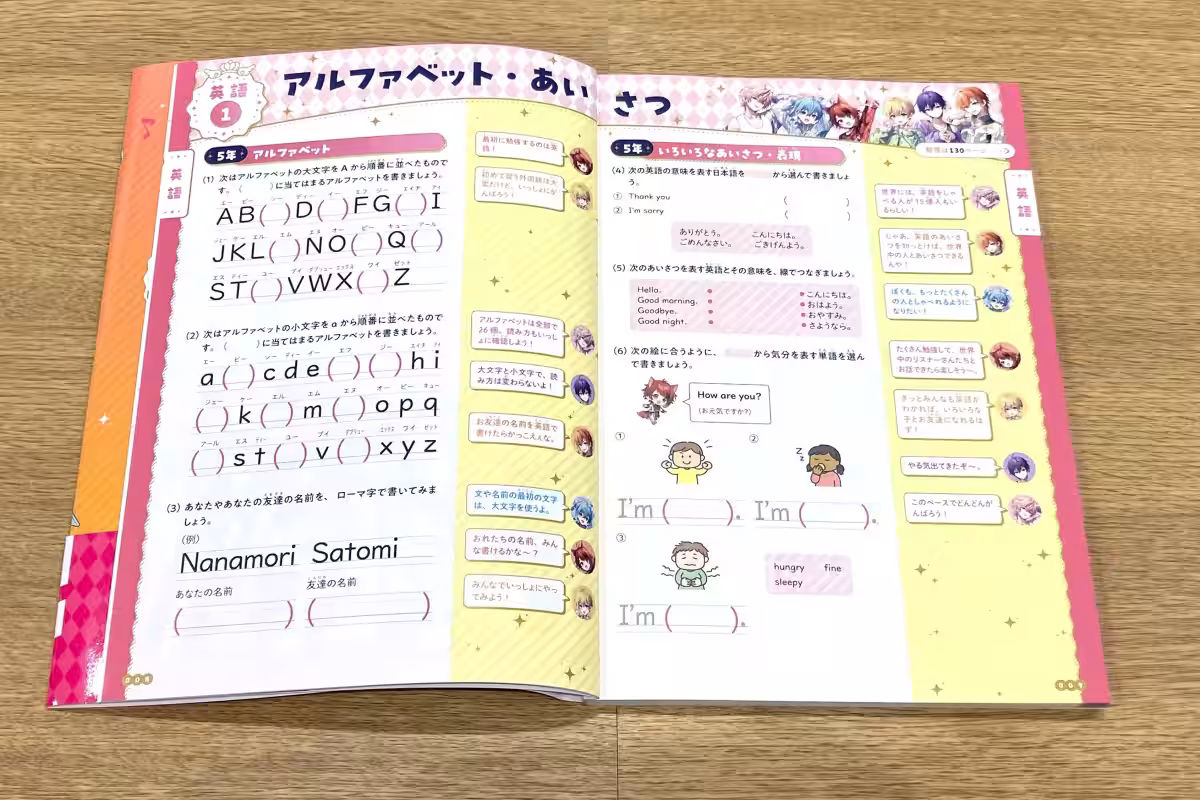 英語
1
アルファベット・あいさつ
英語
5年 アルファベット
(1) 次はアルファベットの大文字をAから順番に並べたもので
す。( )に当てはまるアルファベットを書きましょう。
エー ビー シー ディー イー エフ ジー エイチ アイ
AB( )D( )FG( )I
ジェー ケー エル エム エヌ オー ピー キュー アール
JKL( )NO( )Q( )
エス ティー ユー ブイ ダブリュー エックス ワイ ゼット
ST( )VWX( )Z
(2) 次はアルファベットの小文字をaから順番に並べたもので
す。( )に当てはまるアルファベットを書きましょう。
エー ビー シー ディー イー エフ ジー エイチ アイ
a( )cde( )( )hi
ジェー ケー エル エム エヌ オー ピー キュー
( )k( )m( )opq
アール エス ティー ユー ブイ ダブリュー エックス ワイ ゼット
( )st( )v( )xyz
(3) あなたやあなたの友達の名前を、ローマ字で書いてみま
しょう。
(例)
Nanamori Satomi
あなたの名前 友達の名前
( ) ( )
最初に勉強するのは英
語!
初めて習う外国語は大
変だけど、いっしょにが
んばろう!
アルファベットは全部で
26個。読み方もいっし
ょに確認しよう!
大文字と小文字で、読
み方は変わらないよ!
お友達の名前を英語で
書けたらかっこええな。
文や名前の最初の文字
は、大文字を使うよ。
おれたちの名前、みん
な書けるかな〜?
みんなでいっしょにやっ
てみよう!
解答は130ページ
英語
5年 いろいろなあいさつ・表現
(4) 次の英語の意味を表す日本語を から選んで書きましょ
う。
① Thank you ( )
② I'm sorry ( )
ありがとう。 こんにちは。
ごめんなさい。 ごきげんよう。
(5) 次のあいさつを表す英語とその意味を、線でつなぎましょう。
Hello. ● ●こんにちは。
Good morning. ● ●おはよう。
Goodbye. ● ●おやすみ。
Good night. ● ●さようなら。
(6) 次の絵に合うように、 から気分を表す単語を選ん
で書きましょう。
How are you?
(お元気ですか?)
① ②
Z Z
I'm( ). I'm( ).
③
hungry fine
sleepy
I'm( ).
世界には、英語をしゃ
べる人が15億人もい
るらしい!
じゃあ、英語のあいさ
つを知っとけば、世界
中の人とあいさつできる
んや!
ぼくも、もっとたくさん
の人としゃべれるように
なりたい!
たくさん勉強して、世界
中のリスナーさんたちと
お話できたら楽しそう〜。
きっとみんなも英語が
わかれば、いろいろな
子とお友達になれるは
ず!
やる気出てきたぞ〜。
このペースでどんどんが
んばろう!